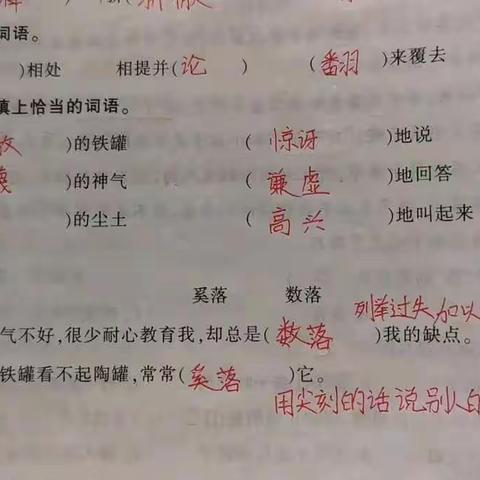 词语。
)相处 相提并(论) (翻)来覆去
填上恰当的词语。
)的铁罐 (惊讶)地说
)的神气 (谦虚)地回答
)的尘土 (高兴)地叫起来
奚落 数落
列举过失加以
气不好,很少耐心教育我,却总是(数落)我的缺点。
铁罐看不起陶罐,常常(奚落)它。
用尖刻的话说别人的